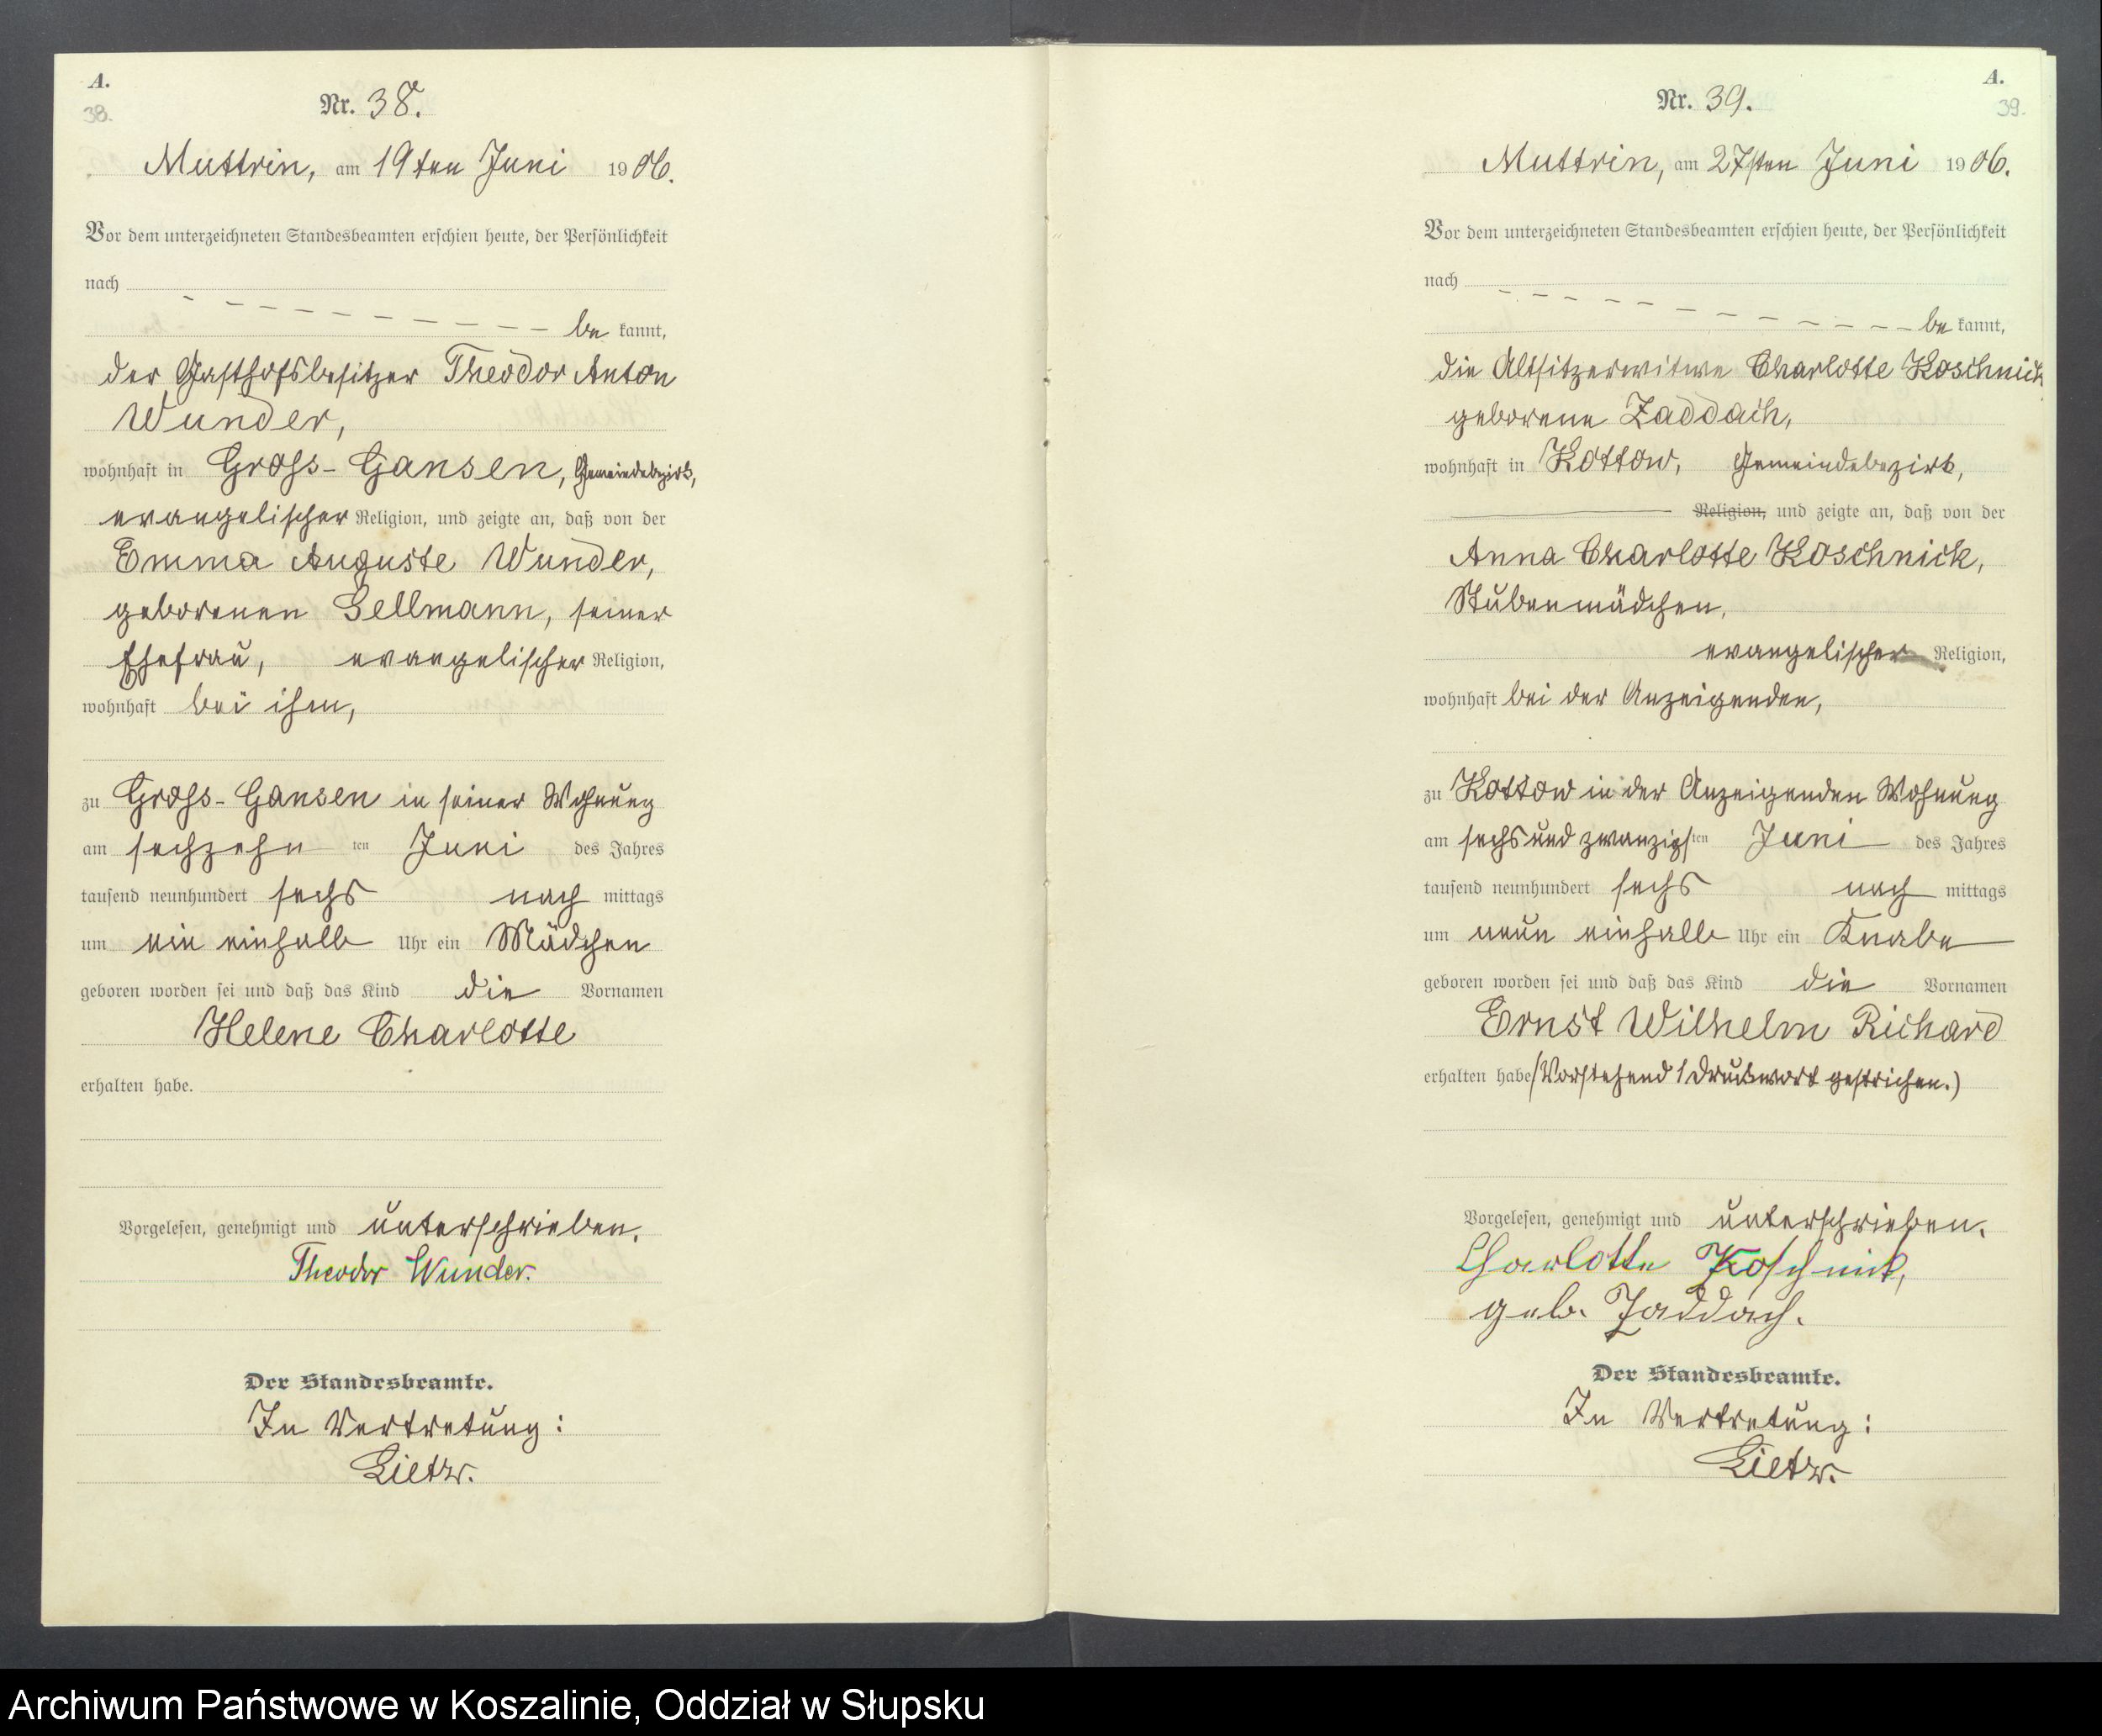 A.
38.
Nr. 38.
Muttrin, am 19ten Juni 1906.
Vor dem unterzeichneten Standesbeamten erschien heute, der Persönlichkeit
nach
be kannt,
der Gasthofsbesitzer Theodor Anton
Wunder,
wohnhaft in Gross-Gansen, Gemeindebezirk,
evangelischer Religion, und zeigte an, daß von der
Emma Auguste Wunder,
geborenen Sellmann, seiner
Ehefrau, evangelischer Religion,
wohnhaft bei ihm,
zu Gross-Gansen in seiner Wohnung
am sechzehn ten Juni des Jahres
tausend neunhundert sechs nach mittags
um ein einhalb Uhr ein Mädchen
geboren worden sei und daß das Kind die Vornamen
Helene Charlotte
erhalten habe.
Vorgelesen, genehmigt und unterschrieben.
Theodor Wunder.
Der Standesbeamte.
In Vertretung:
Lietz.
A.
39.
Nr. 39.
Muttrin, am 27sten Juni 1906.
Vor dem unterzeichneten Standesbeamten erschien heute, der Persönlichkeit
nach
be kannt,
die Altsitzerwitwe Charlotte Koschnick
geborene Zaddach,
wohnhaft in Kottow, Gemeindebezirk,
Religion, und zeigte an, daß von der
Anna Charlotte Koschnick,
Stubenmädchen,
evangelischer Religion,
wohnhaft bei der Anzeigenden,
zu Kottow in der Anzeigenden Wohnung
am sechsundzwanzigsten Juni des Jahres
tausend neunhundert sechs nach mittags
um neun einhalb Uhr ein Knabe
geboren worden sei und daß das Kind die Vornamen
Ernst Wilhelm Richard
erhalten habe (Vorstehend 1 Druckwort gestrichen.)
Vorgelesen, genehmigt und unterschrieben.
Charlotte Koschnick,
geb. Zaddach.
Der Standesbeamte.
In Vertretung:
Lietz.
Archiwum Państwowe w Koszalinie, Oddział w Słupsku